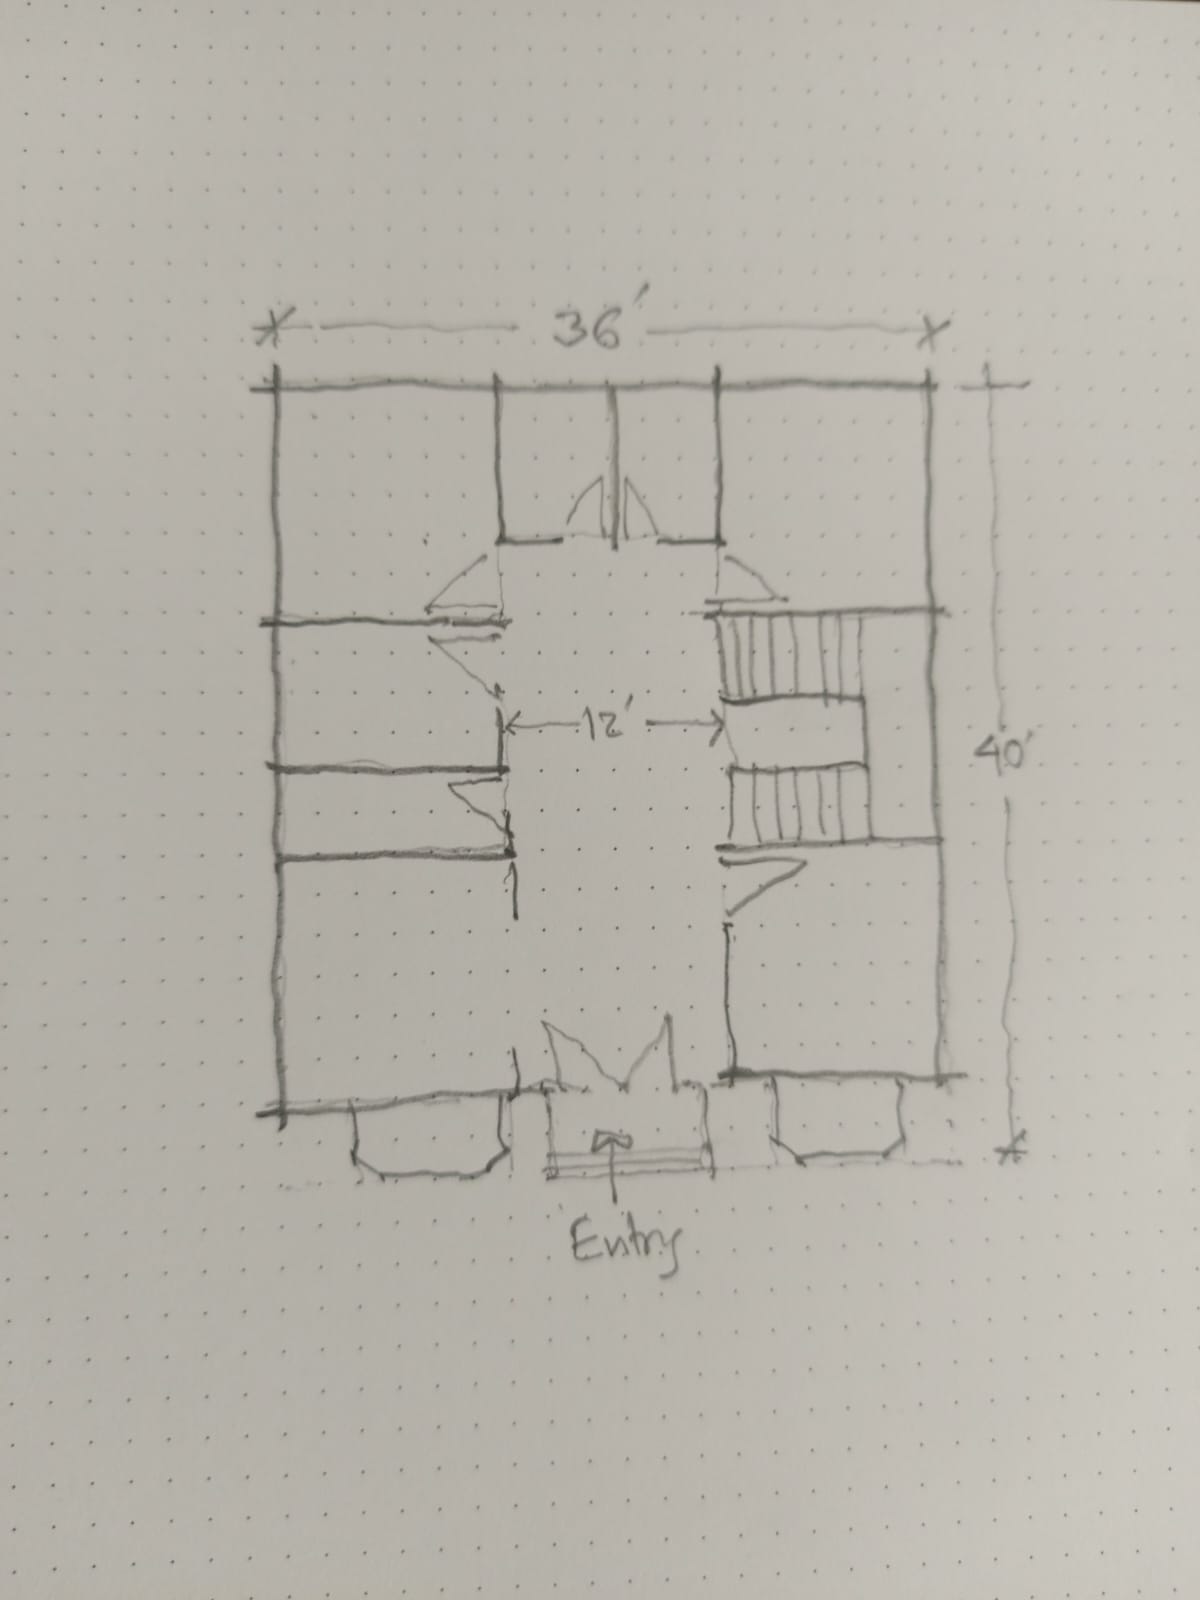 36'
12'
40'
Entry